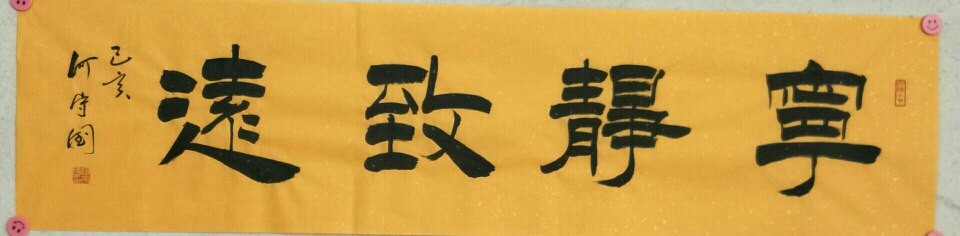 寧靜致遠
己亥
何守國